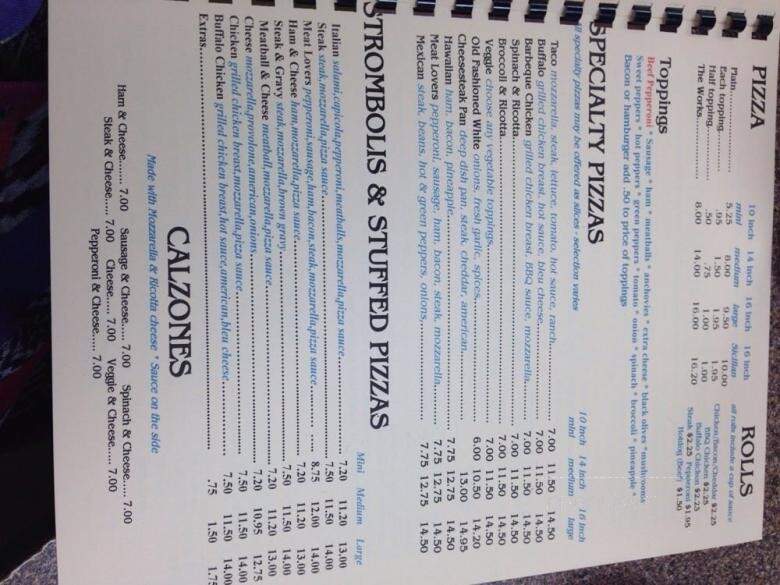 PIZZA
10 Inch 14 Inch 16 Inch 16 Inch
mini medium large Sicilian
Plain 5.25 8.00 9.50 10.00
Each topping .95 1.50 1.95 1.95
Half topping .50 .75 1.00 1.00
The Works 8.00 14.00 16.00 16.20
ROLLS
all rolls include a cup of sauce
Chicken/Bacon/Cheddar $2.25
BBQ Chicken $2.25
Buffalo Chicken $2.25
Steak $2.25 Pepperoni $1.95
Hotdog (Beef) $1.50
Toppings
Beef Pepperoni * Sausage * ham * meatballs * anchovies * extra cheese * black olives * mushrooms
Sweet peppers * hot peppers * green peppers * tomato * onion * spinach * broccoli * pineapple *
Bacon or hamburger add .50 to price of toppings
SPECIALTY PIZZAS
all specialty pizzas may be offered as slices - selection varies
10 Inch 14 Inch 16 Inch
mini medium large
Taco mozzarella, steak, lettuce, tomato, hot sauce, ranch 7.00 11.50 14.50
Buffalo grilled chicken breast, hot sauce, bleu cheese 7.00 11.50 14.50
Barbeque Chicken grilled chicken breast, BBQ sauce, mozzarella 7.00 11.50 14.50
Spinach & Ricotta 7.00 11.50 14.50
Broccoli & Ricotta 7.00 11.50 14.50
Veggie choose any vegetable toppings 7.00 11.50 14.50
Old Fashioned White onions, fresh garlic, spices 6.00 10.50 14.20
Cheesesteak Pan deep dish pan, steak, cheddar, american 13.00 14.95
Hawaiian ham, bacon, pineapple 7.75 12.75 14.50
Meat Lovers pepperoni, sausage, ham, bacon, steak, mozzarella 7.75 12.75 14.50
Mexican steak, beans, hot & green peppers, onions, 7.75 12.75 14.50
STROMBOLIS & STUFFED PIZZAS
Mini Medium Large
Italian salami,capicola,pepperoni,meatballs,mozzarella,pizza sauce 7.20 11.20 13.00
Steak steak,mozzarella,pizza sauce 7.50 11.50 14.00
Meat Lovers pepperoni,sausage,ham,bacon,steak,mozzarella,pizza sauce 8.75 12.00 14.00
Ham & Cheese ham,mozzarella,pizza sauce 7.20 11.20 13.00
Steak & Gravy steak,mozzarella,brown gravy 7.50 11.50 14.00
Meatball & Cheese meatball,mozzarella,pizza sauce 7.20 11.20 13.00
Cheese mozzarella,provolone,american,onions 7.20 10.95 12.75
Chicken grilled chicken breast,mozzarella,pizza sauce 7.50 11.50 14.00
Buffalo Chicken grilled chicken breast,hot sauce,american,bleu cheese 7.50 11.50 14.00
Extras .75 1.50 1.75
CALZONES
Made with Mozzarella & Ricotta cheese * Sauce on the side
Ham & Cheese....... 7.00 Sausage & Cheese..... 7.00 Spinach & Cheese..... 7.00
Steak & Cheese..... 7.00 Cheese..... 7.00 Veggie & Cheese..... 7.00
Pepperoni & Cheese..... 7.00